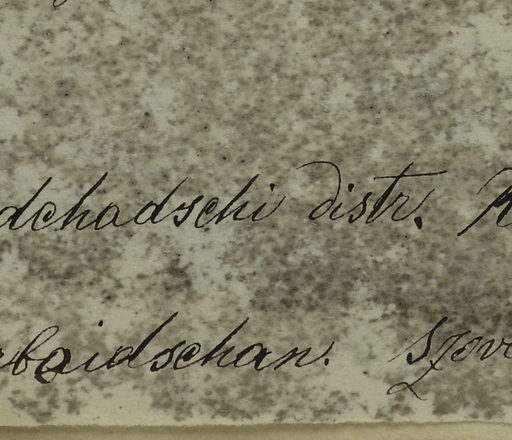 dchadschi distr. K
rbaidschan. Szov